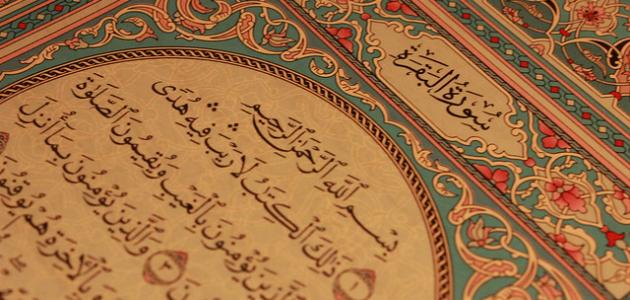 سُورَةُ البَقَرَةِ
بِسْمِ ٱللَّهِ ٱلرَّحْمَٰنِ ٱلرَّحِيمِ
١ ذَٰلِكَ ٱلْكِتَٰبُ لَا رَيْبَ فِيهِ هُدًى
ٱلَّذِينَ يُؤْمِنُونَ بِٱلْغَيْبِ وَيُقِيمُونَ ٱلصَّلَوٰةَ
٣ وَٱلَّذِينَ يُؤْمِنُونَ بِمَآ أُنزِلَ
وَبِٱلْأَخِرَةِ هُمْ يُوقِنُونَ